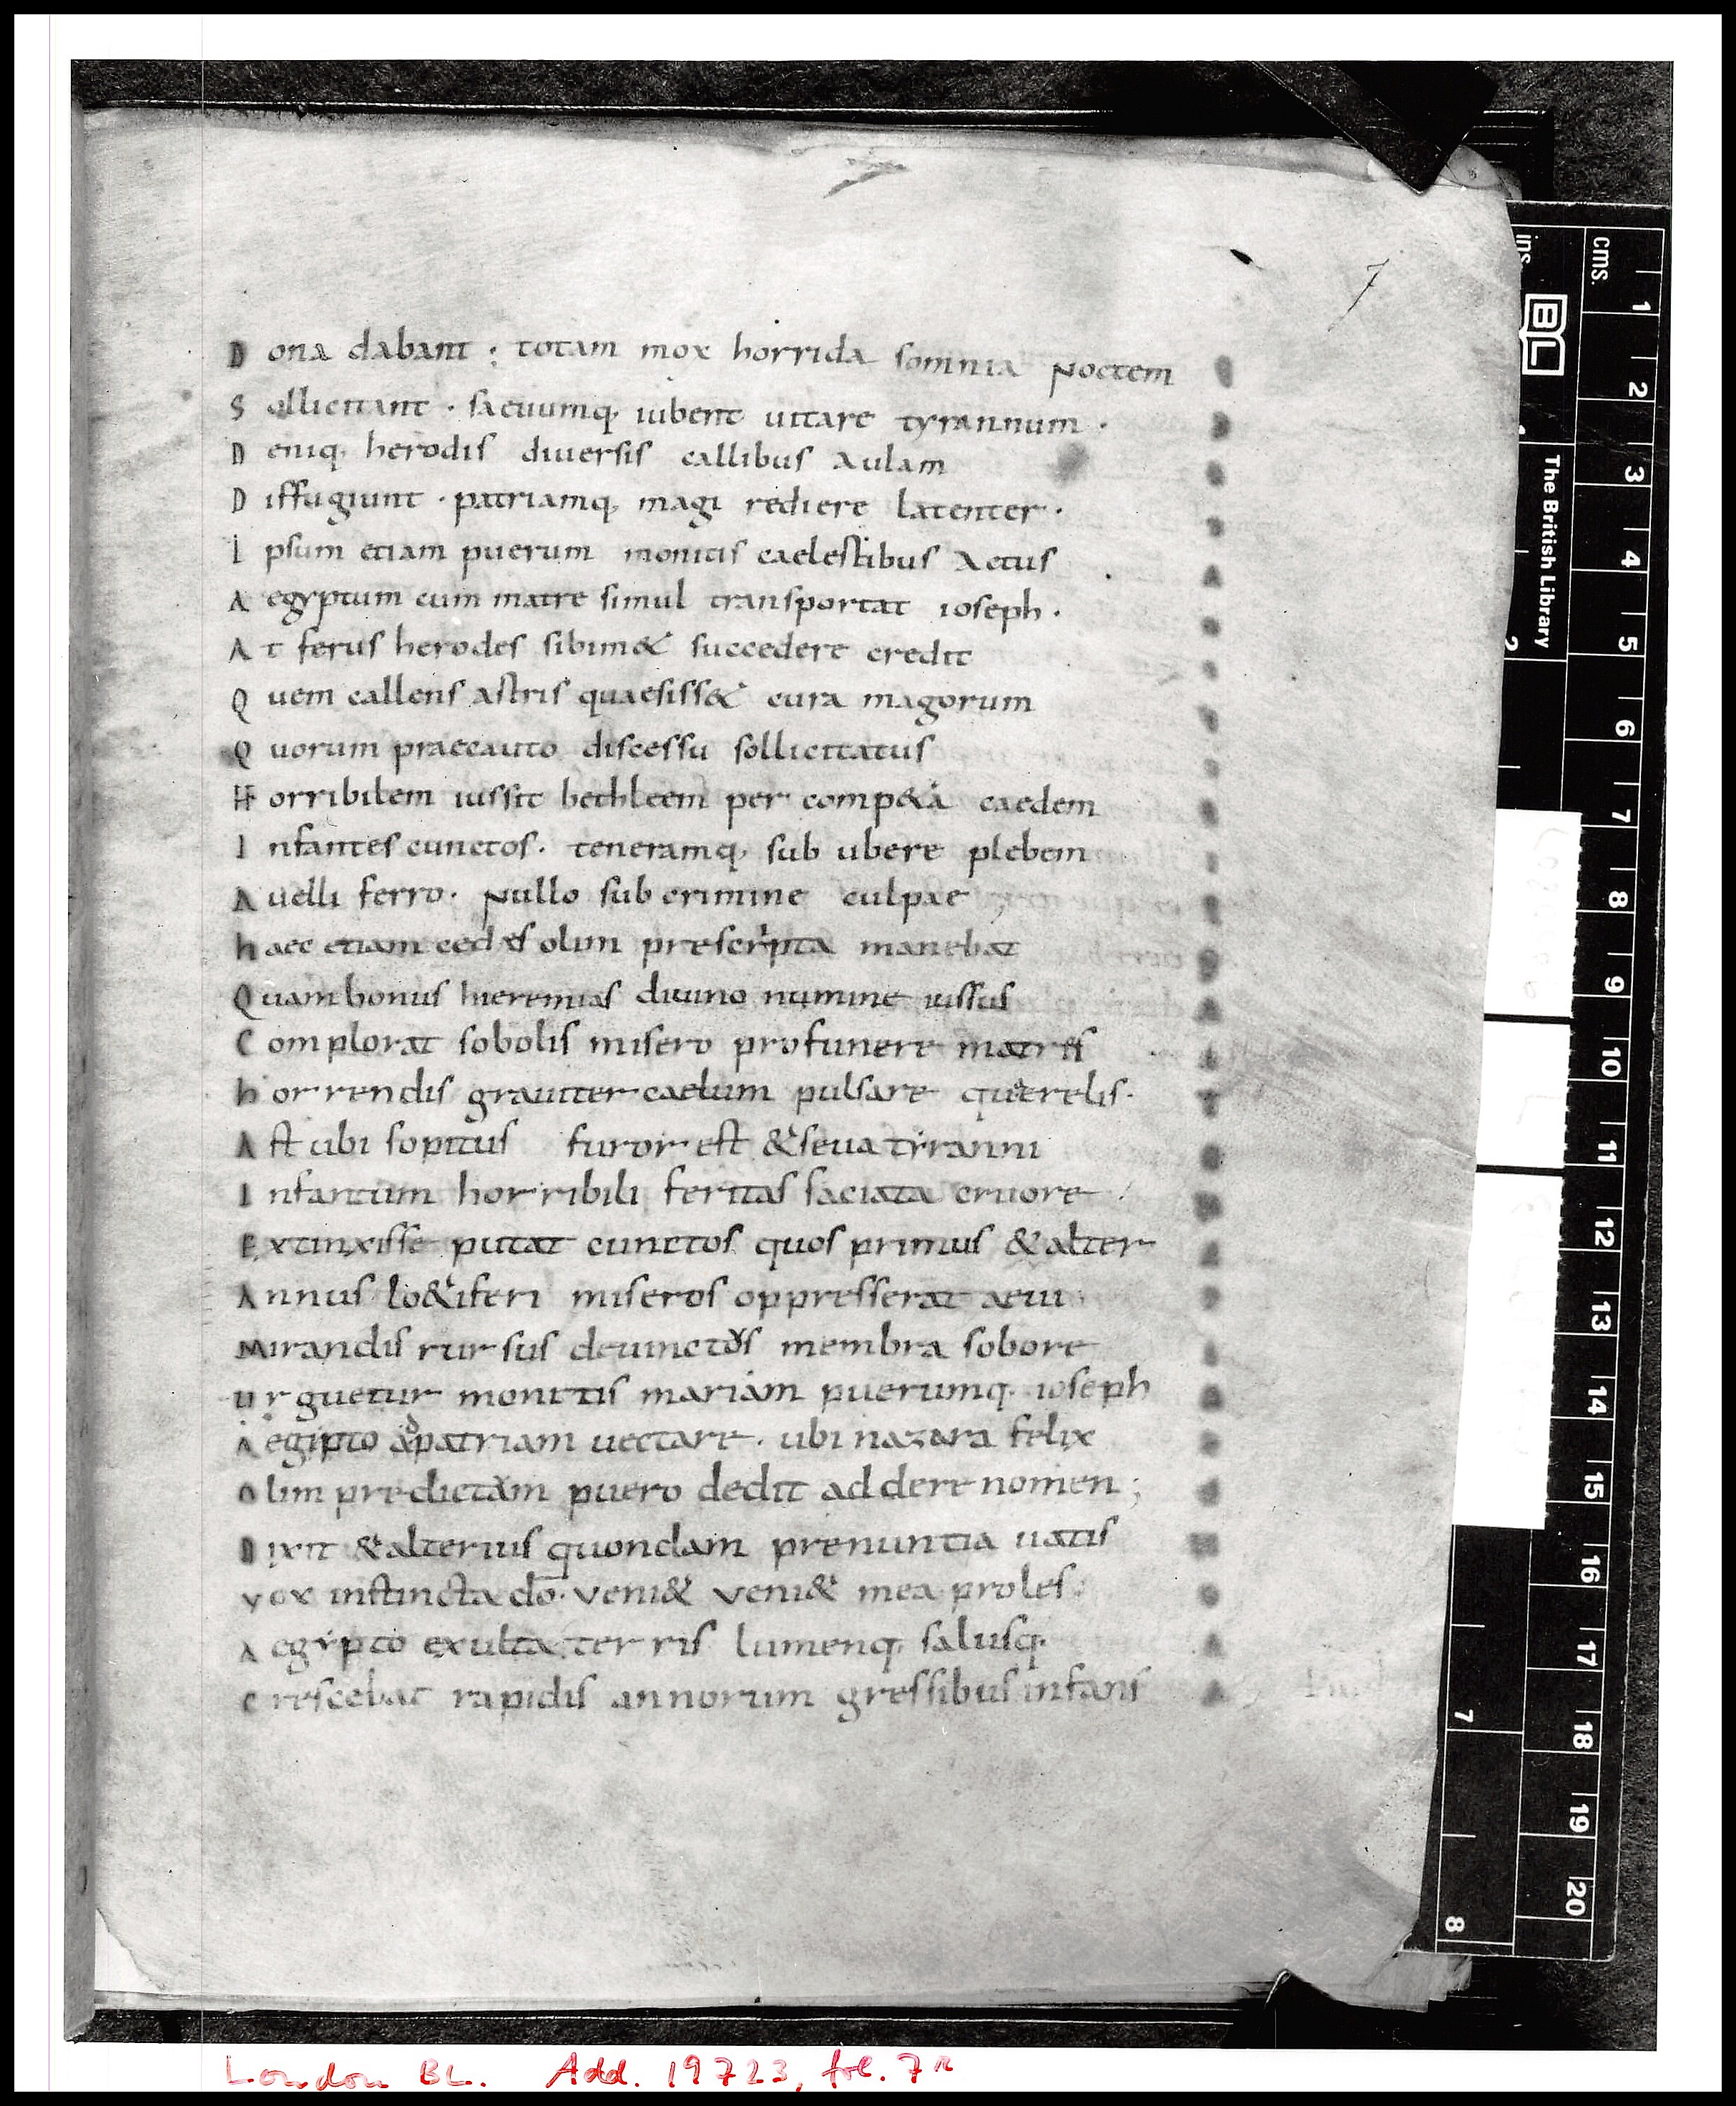 7
D ona dabant ; totam mox horrida somnia Noctem
S ollicitant · saeuumq; iubent uitare tyrannum ·
D eniq; herodis diuersis callibus aulam
D iffugiunt · patriamq; magi rediere latenter ·
I psum etiam puerum monitis caelestibus actus
A egyptum cum matre simul transportat ioseph ·
A t ferus herodes sibim& succedere credit
Q uem callens astris quaesiss& cura magorum
Q uorum praecauto discessu sollicitatus
H orribilem iussit bethleem per comp&a caedem
I nfantes cunctos · teneramq; sub ubere plebem
A uelli ferro · Nullo sub crimine culpae
h aec etiam cedes olim prescripta manebat
Q uam bonus hieremias diuino numine iussus
C omplorat sobolis misero pro funere matres
h orrendis grauiter caelum pulsare querelis ·
A st ubi sopitus furor est & seua tyranni
I nfantum horribili feritas saciata cruore
E xtinxisse putat cunctos quos primus & alter
A nnus lo&iferi miseros oppresserat aeui
M irandis rursus deuinctus membra sobore
U rguetur monitis mariam puerumq; ioseph
A egipto ad patriam uectare · ubi nazara felix
O lim predictum puero dedit addere nomen ;
D ixit & alterius quondam prenuntia uatis
V ox instincta dō · veni& veni& mea proles
A egypto exulta terris lumenq; salusq;
C rescebat rapidis annorum gressibus infans
ins.
cms.
BL
The British Library
1
2
3
4
5
6
7
8
9
10
11
12
13
14
15
16
17
18
19
20
2
7
8
London BL. Add. 19723, fol. 7r